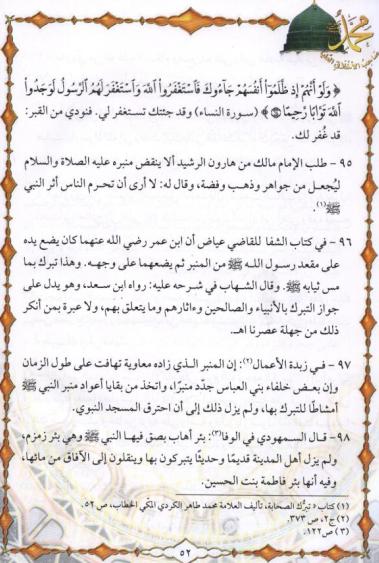 محمد
﴿ وَلَوْ أَنَّهُمْ إِذ ظَّلَمُوٓا۟ أَنفُسَهُمْ جَآءُوكَ فَٱسْتَغْفَرُوا۟ ٱللَّهَ وَٱسْتَغْفَرَ لَهُمُ ٱلرَّسُولُ لَوَجَدُوا۟
ٱللَّهَ تَوَّابًا رَّحِيمًا ﴾ (سورة النساء) وقد جئتك تستغفر لي. فنودي من القبر:
قد غُفر لك.
٩٥ - طلب الإمام مالك من هارون الرشيد ألا ينقض منبره عليه الصلاة والسلام
ليُجعل من جواهر وذهب وفضة، وقال له: لا أرى أن تحرم الناس أثر النبي
ﷺ(١).
٩٦ - في كتاب الشفا للقاضي عياض أن ابن عمر رضي الله عنهما كان يضع يده
على مقعد رسول اللـه ﷺ من المنبر ثم يضعهما على وجهـه. وهذا تبرك بما
مس ثيابه ﷺ. وقال الشهاب في شرحه عليه: رواه ابن سعد، وهو يدل على
جواز التبرك بالأنبياء والصالحين وءاثارهم وما يتعلق بهم، ولا عبرة بمن أنكر
ذلك من جهلة عصرنا اهـ.
٩٧ - فـي زبدة الأعمال(٢): إن المنبر الـذي زاده معاوية تهافت على طول الزمان
وإن بعـض خلفاء بني العباس جدّد منبرًا، واتخذ من بقايا أعواد منبر النبي ﷺ
أمشاطًا للتبرك بها، ولم يزل ذلك إلى أن احترق المسجد النبوي.
٩٨ - قـال السـمهودي في الوفا(٣): بئر أهاب بصق فيهـا النبي ﷺ وهي بئر زمزم،
ولم يزل أهل المدينة قديمًا وحديثًا يتبركون بها وينقلون إلى الآفاق من مائها،
وفيه أنها بئر فاطمة بنت الحسين.
(١) كتاب « تبرّك الصحابة، تأليف العلامة محمد طاهر الكردي المكي الخطاب، ص ٥٢.
(٢) ج٢، ص ٣٧٣.
(٣) ص ١٢٢.
٥٢